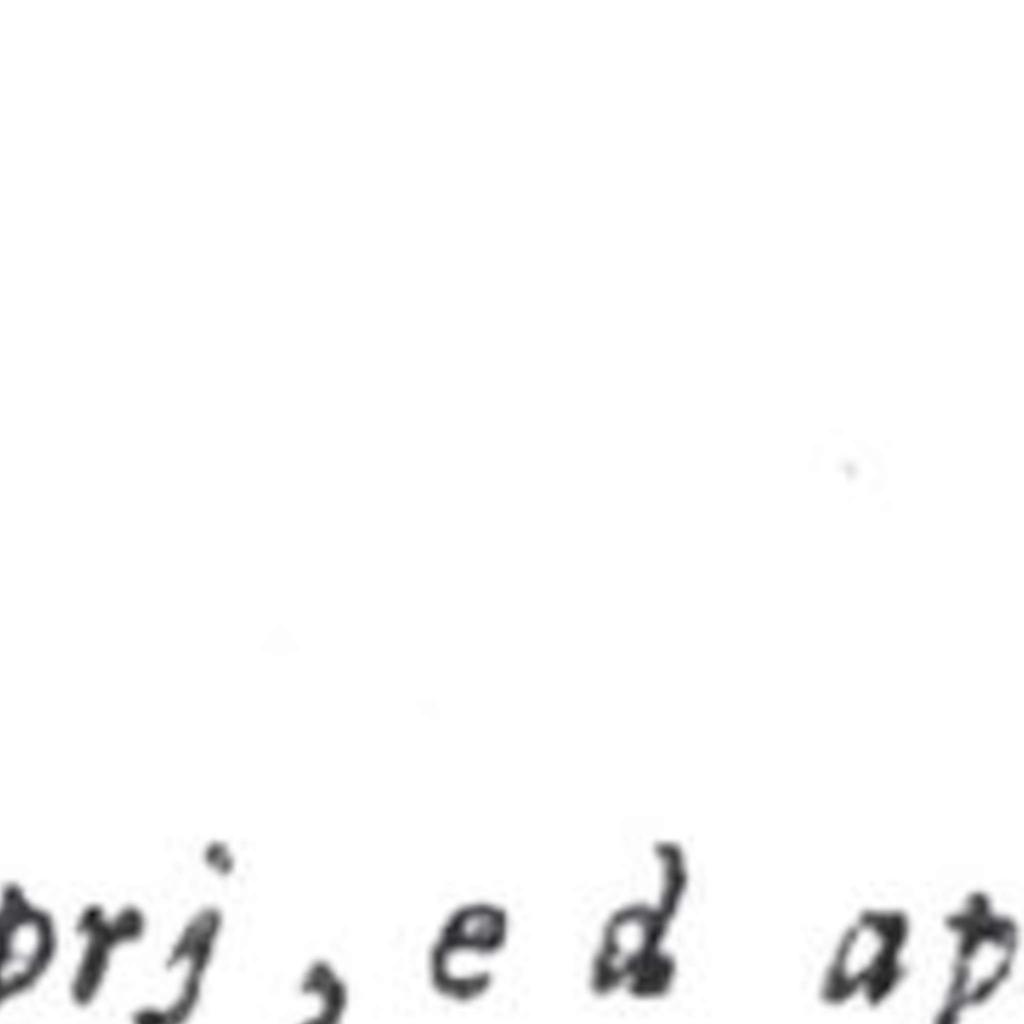 prj, e d ap